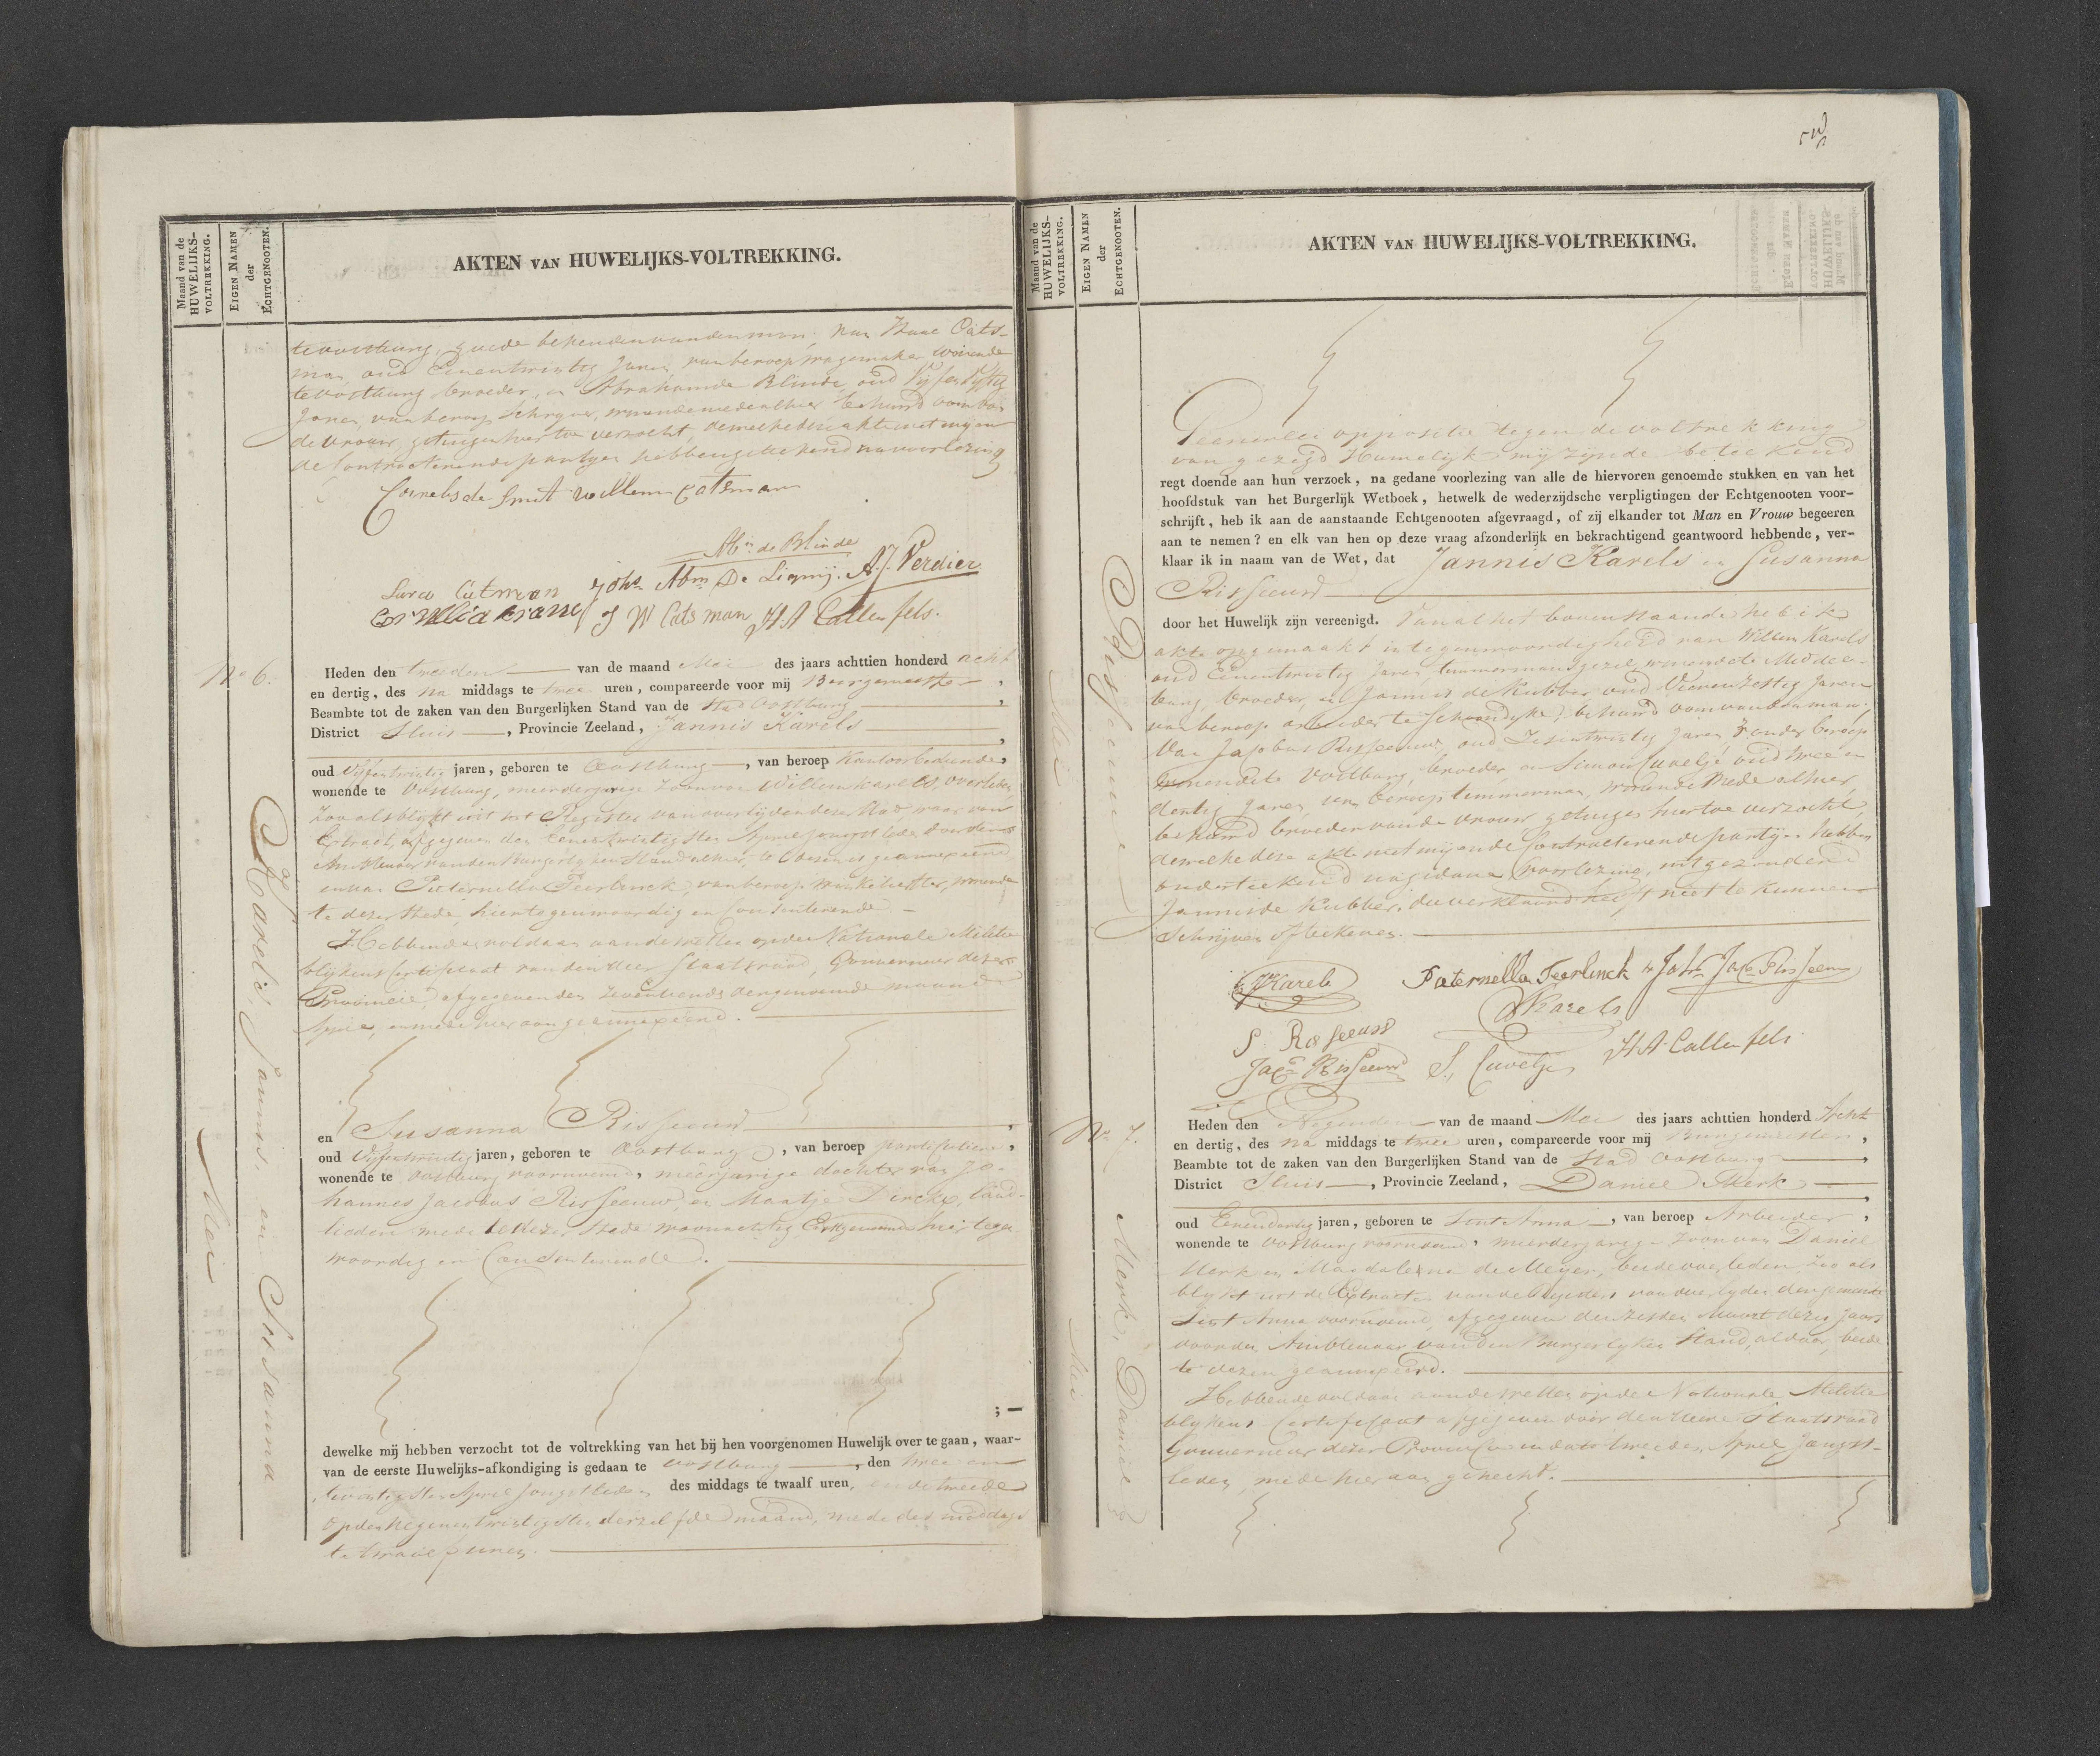 Maand van de
HUWELIJKS-
VOLTREKKING.
EIGEN NAMEN
der
ECHTGENOOTEN.
AKTEN VAN HUWELIJKS-VOLTREKKING.
te Oostburg, goede bekenden van den man; van Izaac Cats-
man oud Eenentwintig Jaren, van beroep wagemaker wonende
te Oostburg broeder, en Abraham de Blinde, oud Vijfenvijftig
Jaren, van beroep Schryver, wonende mede alhier behuwd oom van
de vrouw, getuigen hiertoe verzocht, dewelke deze akte met mij en
de Contracterende partyen hebben geteekend na voorlezing
Cornelis de Smit willem Catsman
Abm de Blinde
Sara Catsman Johs Abm De Lignij. A. J. Verdier
J W Catsman H A Callenfels.
No 6.
Karels, Jannis, en Susanna
Mei
Heden den tweeden van de maand Mei des jaars achttien honderd acht
en dertig, des na middags te twee uren, compareerde voor mij Burgemeester,
Beambte tot de zaken van den Burgerlijken Stand van de Stad Oostburg,
District Sluis, Provincie Zeeland, Jannis Karels,
oud Vijfentwintig jaren, geboren te Oostburg, van beroep Kantoorbediende,
wonende te Oostburg, meerderjarige Zoon van Willem Karels, overleden
Zoo als blijkt uit het Register van overlijden dezer Stad, waar van
Extract, afgegeven den eenentwintigsten April jongstleden door den
Ambtenaar van den Burgerlyken Stand alhier, te dezen is geannexeerd
en van Pieternella Teerlinck, van beroep Winkelierster, wonende
te dezer Stede, hier tegenwoordig en Consenterende
Hebbende voldaan aan de wetten op de Nationale Militie
blijkens Certificaat van den Heer Staatsraad, Gouverneur dezer
Provincie, afgegeven den zeventiende der genoemde maand
April, en mede hier aan geannexeerd.
en Susanna Risseeuw,
oud Vijfentwintig jaren, geboren te Oostburg, van beroep particuliere,
wonende te Oostburg voornoemd, meerjarige dochter van Jo-
hannes Jacobus Risseeuw, en Maatje Dirckx, land-
lieden mede te dezer Stede woonachtig Echtgenooten hier tegen
woordig en Consenterende.
; —
dewelke mij hebben verzocht tot de voltrekking van het bij hen voorgenomen Huwelijk over te gaan, waar-
van de eerste Huwelijks-afkondiging is gedaan te Oostburg, den twee en
twintigsten April jongstleden des middags te twaalf uren, en de tweede
op den Negenentwintigsten derzelfde maand, mede des middags
te twaalf uren.
Maand van de
HUWELIJKS-
VOLTREKKING.
EIGEN NAMEN
der
ECHTGENOOTEN.
AKTEN VAN HUWELIJKS-VOLTREKKING.
Risseeuw
Mei
Geenerlei oppositie tegen de voltrekking
van gezegd Huwelijk mij zijnde beteekend
regt doende aan hun verzoek, na gedane voorlezing van alle de hiervoren genoemde stukken en van het
hoofdstuk van het Burgerlijk Wetboek, hetwelk de wederzijdsche verpligtingen der Echtgenooten voor-
schrijft, heb ik aan de aanstaande Echtgenooten afgevraagd, of zij elkander tot Man en Vrouw begeeren
aan te nemen? en elk van hen op deze vraag afzonderlijk en bekrachtigend geantwoord hebbende, ver-
klaar ik in naam van de Wet, dat Jannis Karels en Susanna
Risseeuw
door het Huwelijk zijn vereenigd. Van al het bovenstaande heb ik
akte opgemaakt in tegenwoordigheid van Willem Karels
oud Eenentwintig Jaren timmermansgezel, wonende te Middel-
burg, broeder, en Jannis de Kubber oud Vierenzestig Jaren
van beroep arbeider te Schoondyke, behuwd oom van den man;
Van Jacobus Risseeuw, oud Zesentwintig Jaren Zonder beroep
wonende te Oostburg, broeder, en Simon Cuvelje oud twee en
dertig Jaren, van beroep timmerman, wonende Mede alhier,
behuwd broeder van de vrouw, getuigen hiertoe verzocht,
dewelke deze akte met mij en de Contracterende partijen hebben
onderteekend na gedane voorlezing, uitgezonderd
Jannis de Kubber, die verklaard heeft niet te kunnen
Schrijven of teekenen.
J Karels Pieternella Teerlinck Johs Jacs Risseeuw
W Karels
S. Risseeuw
Jacs Risseeuw S. Cuvelje H A Callenfels
No 7.
Merk, Daniel
Mei
Heden den Negenden van de maand Mei des jaars achttien honderd Acht
en dertig, des na middags te twee uren, compareerde voor mij Burgemeester,
Beambte tot de zaken van den Burgerlijken Stand van de Stad Oostburg,
District Sluis, Provincie Zeeland, Daniel Merk,
oud Eenendertig jaren, geboren te Sint Anna, van beroep Arbeider,
wonende te Oostburg voornoemd, meerderjarige Zoon van Daniel
Merk en Magdalena de Meyer, beide overleden, Zoo als
blijkt uit de Extracten van de Registers van overlyden der gemeente
Sint Anna voornoemd, afgegeven den zesden Maart dezes Jaars
door den Ambtenaar van den Burgerlyken Stand, aldaar, beide
te dezen geannexeerd.
Hebbende voldaan aan de wetten op de Nationale Militie
blykens Certificaat afgegeven door den Heere Staatsraad
Gouverneur dezer Provincie in dato tweeden April Jongst-
leden, mede hier aan gehecht.